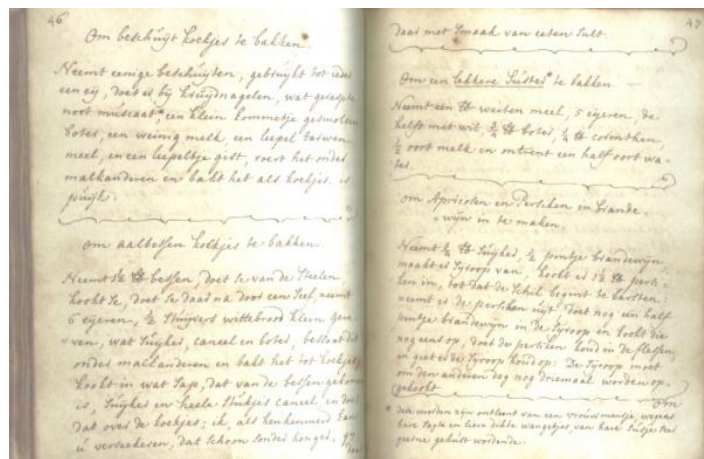 46
Om beschuijt koekjes te bakken.
Neemt eenige beschuijten, gebruijkt tot ieder
een eij, doed er bij kruijdnagelen, wat geraspte
noot muscaat, een klein kommetje gesmolten
boter, een weinig melk een leepel tarwen
meel, en een leepeltje gist, roert het onder
malkanderen en bakt het als koekjes. is
puijk.
om aalbessen koekjes te bakken.
Neemt 1½ ℔ bessen, doet se van de steelen
kookt se, doet se daar na door een seef, neemt
6 eijeren, ½ stuijvers wittebrood klein gevre-
ven, wat suijker, caneel en boter,
onder malkanderen en bakt het tot koekjes,
kookt in wat sap, dat van de bessen gekomen
is, suijker en heele stukjes caneel, en doet
dat over de koekjes; ik, als
u verseekeren, dat schoon sonder honger, gij
47
daar met smaak van eeten sult.
Om een lekkere Suster te bakken
Neemt een ℔ weiten meel, 5 eijeren, de
helft met wit, ¾ ℔ boter, ¼ ℔ corinthen,
½ oort melk en ontrent een half oort wa-
ter.
om Apricosen en Persiken in brande-
wijn in te maken
Neemt ¾ ℔ suijker, ½ pintje brandewijn,
maakt er syroop van, kookt er 1½ ℔ persi-
ken in, tot dat de schil begint te barsten:
neemt er de persiken uijt. doet nog een half
pintje brandewijn in de syroop en kookt die
nog eens op, doet de persiken koud in de flessen,
en giet er de syroop koud op: De syroop moet
om den anderen dag nog driemaal worden op-
gekookt.
om
* dese woorden zijn ontleent van een vrouw mensje, wegens
hare sagte en lieve dikke wangetjes, van hare susje seer
geerne gekust wordende.